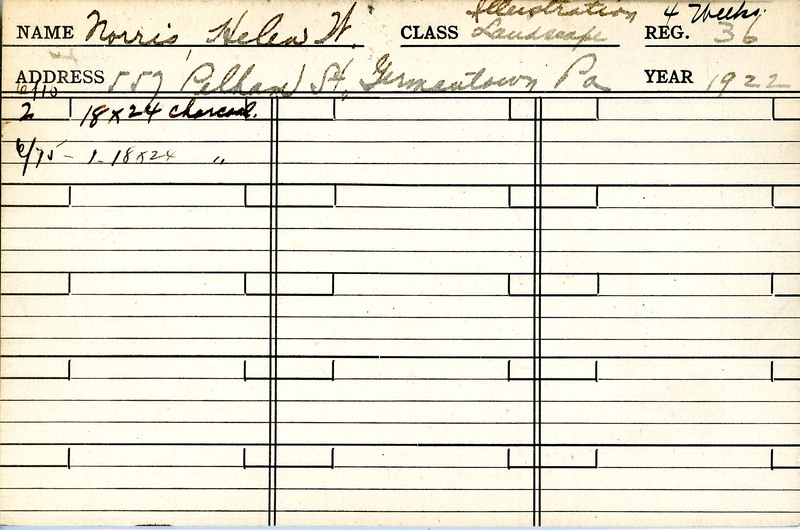 Illustration 4 Weeks.
NAME Norris, Helen W. CLASS Landscape REG. 36
ADDRESS 557 Pelham St., Germantown Pa YEAR 1922
6/10
2 18x24 charcoal.
- 1 - 18x24 "